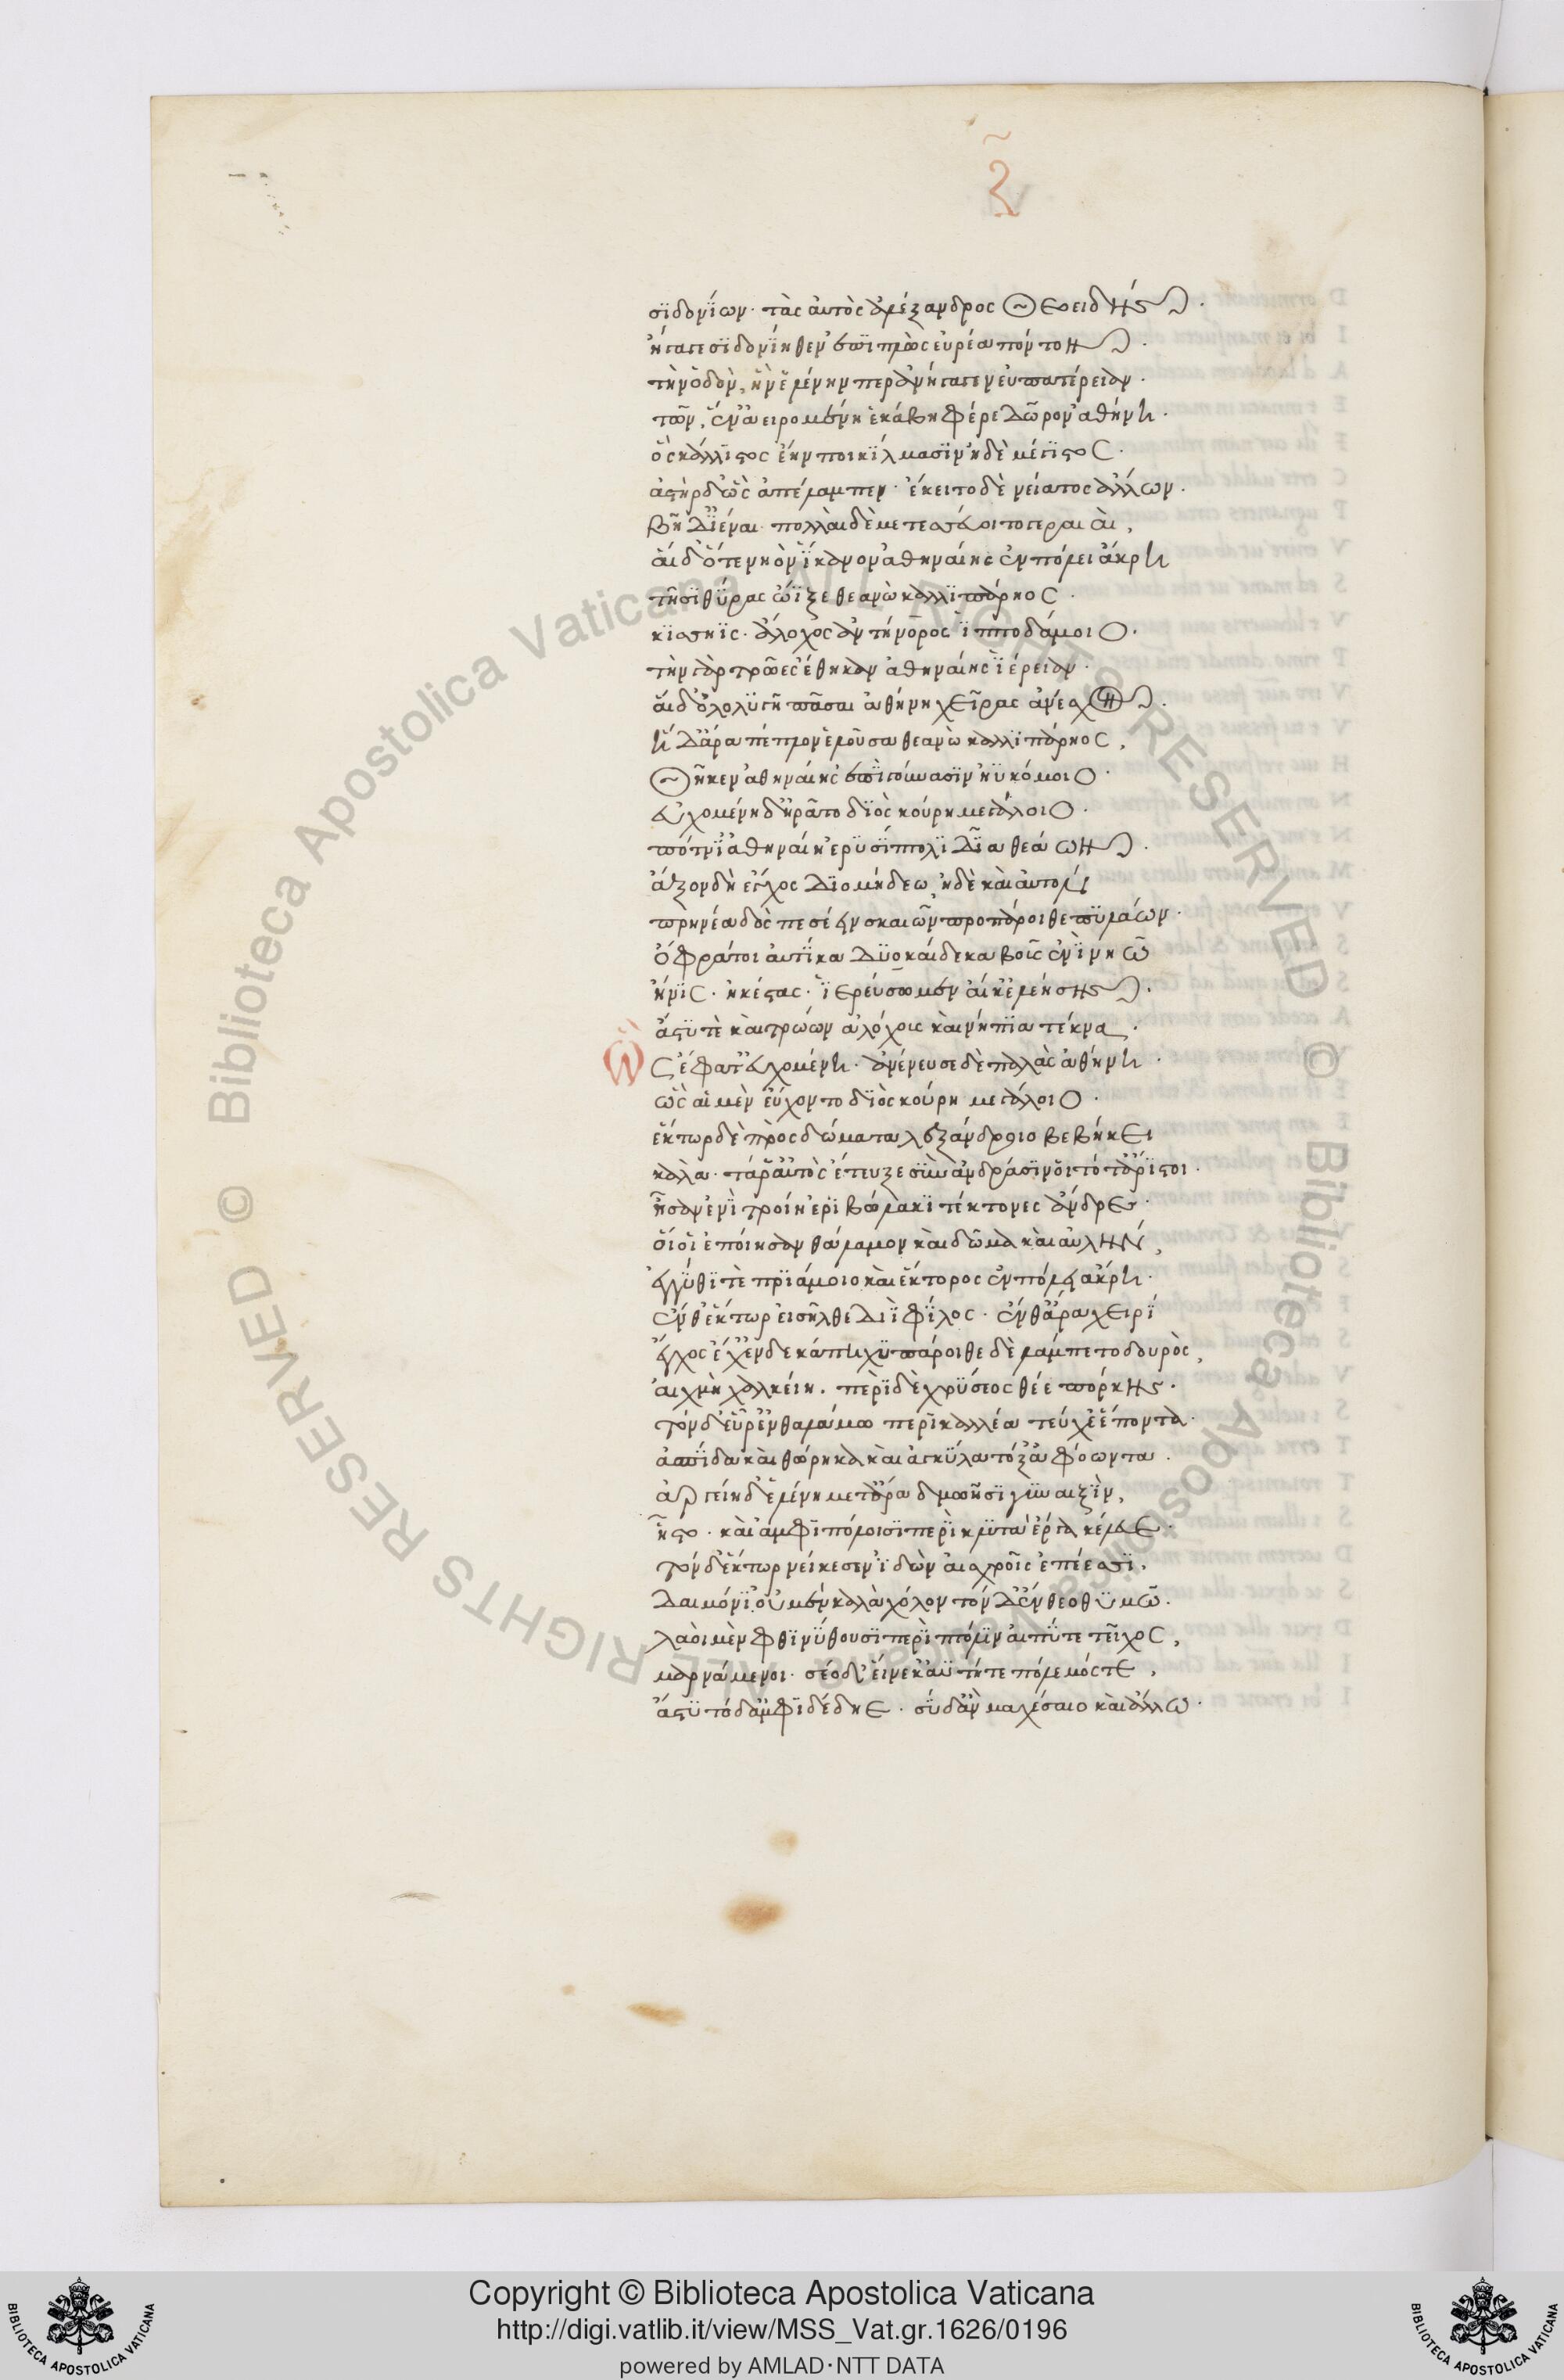 ζ
σϊδονΐων· τὰς ἀυτὸς ἀλέξανδρος θεοειδής·
ἤγαγε σϊδονΐηθεν ἐπϊπλὼς ἐυρέα πόντον·
τὴν ὁδὸν, ἣν ἑλένην περ ἀνήγαγεν ἐυπατέρειαν·
τῶν, ἕν ἀειρομένη ἑκάβη φέρε δῶρον ἀθήνη·
ὃς κάλλϊστος ἔην ποικΐλμασϊν ἠδὲ μέγϊστος·
ἀστὴρ δ' ὣς ἀπέλαμπεν· ἔκειτο δὲ νείατος ἄλλων·
βῆ δ' ϊέναι· πολλαὶ δὲ μετεσσεύοντο γεραιαὶ,
ἁι δ' ὅτε νηὸν ΐκανον ἀθηναίης ἐν πόλει ἄκρη
τῇσϊ θΰρας ὤϊξε θεανὼ καλλϊπάρηος·
κϊσσηῒς· ἄλοχος ἀντήνορος ϊπποδάμοιο·
τὴν γὰρ τρῶες ἔθηκαν ἀθηναίης ϊέρειαν·
ἁι δ' ὀλολϋγῇ πᾶσαι ἀθήνη χεῖρας ἀνέσχον·
ἡ δ' ἄρα πέπλον ἑλοῦσα θεανὼ καλλϊπάρηος,
θῆκεν ἀθηναίης ἐπῒ γούνασϊν ἠϋκόμοιο·
ἐυχομένη δ' ἠρᾶτο δϊὸς κούρη μεγάλοιο·
πότνϊ' ἀθηναίη ἐρϋσΐπτολϊ δῖα θεάων·
ἆξον δὴ ἔγχος δϊομήδεω, ἠδὲ καὶ ἀυτὸν
πρηνέα δὸς πεσέειν σκαιῶν προπάροιθε πϋλάων·
ὄφρα τοι ἀυτΐκα δϋοκαίδεκα βοῦς ἐνῒ νηῶ
ἤνϊς· ἠκέστας· ϊερεύσομεν ἄι κ' ἐλεήσης·
ἄστϋ τὲ καὶ τρώων ἀλόχους καὶ νήπϊα τέκνα·
Ὣς ἔφατ' ἐυχομένη· ἀνένευσε δὲ παλλὰς ἀθήνη·
ὣς αἱ μὲν ἐύχοντο δϊὸς κούρη μεγάλοιο·
ἕκτωρ δὲ πρὸς δώματ' ἀλεξάνδροιο βεβήκει
καλὰ· τά ῥ' ἀυτὸς ἔτευξε σὺν ἀνδράσϊν ὃι τότ' ἄρϊστοι·
ἦσαν ἐνῒ τροίη ἐρϊβώλακϊ τέκτονες ἄνδρες·
ὅι ὁι ἐποίησαν θάλαμον καὶ δῶμα καὶ ἀυλήν,
ἐγγΰθϊ τὲ πρϊάμοιο καὶ ἕκτορος ἐν πόλει ἄκρη·
ἔνθ' ἕκτωρ ἐισῆλθε διῒ φΐλος· ἐν δ' ἄρα χειρῒ
ἔγχος ἔχ' ἑνδεκάπηχϋ πάροιθε δὲ λάμπετο δουρὸς,
ἀιχμὴ χαλκείη· περῒ δὲ χρΰσεος θέε πόρκης·
τὸν δ' ἐῦρ' ἐν θαλάμω περϊκαλλέα τεύχε' ἕποντα·
ἀσπΐδα καὶ θώρηκα καὶ ἀγκΰλα τόξ' ἀφόωντα·
ἀργείη δ' ἑλένη μετ' ἄρα δμωῇσϊ γυναιξῒν,
ἧστο· καὶ ἀμφϊπόλοισϊ περϊκλϋτὰ ἔργα κέλευε·
τὸν δ' ἕκτωρ νείκεσσεν ϊδὼν ἀισχροῖς ἐπέεσσϊ,
δαιμόνϊ' ὀυ μὲν καλὰ χόλον τόνδ' ἔνθεο θϋμῶ·
λαοὶ μὲν φθϊνΰθουσϊ περῒ πτόλϊν ἀιπΰ τε τεῖχος,
μαρνάμενοι· σέο δ' ἕινεκ' ἀϋτή τε πόλεμός τε,
ἄστϋ τόδ' ἀμφϊδέδηε· σῢ δ' ἂν μαχέσαιο καὶ ἄλλω·
Copyright © Biblioteca Apostolica Vaticana
http://digi.vatlib.it/view/MSS_Vat.gr.1626/0196
powered by AMLAD·NTT DATA
© Biblioteca Apostolica Vaticana ALL RIGHTS RESERVED © Biblioteca Apostolica Vaticana ALL RIGHTS RESERVED
BIBLIOTECA APOSTOLICA VATICANA
BIBLIOTECA APOSTOLICA VATICANA